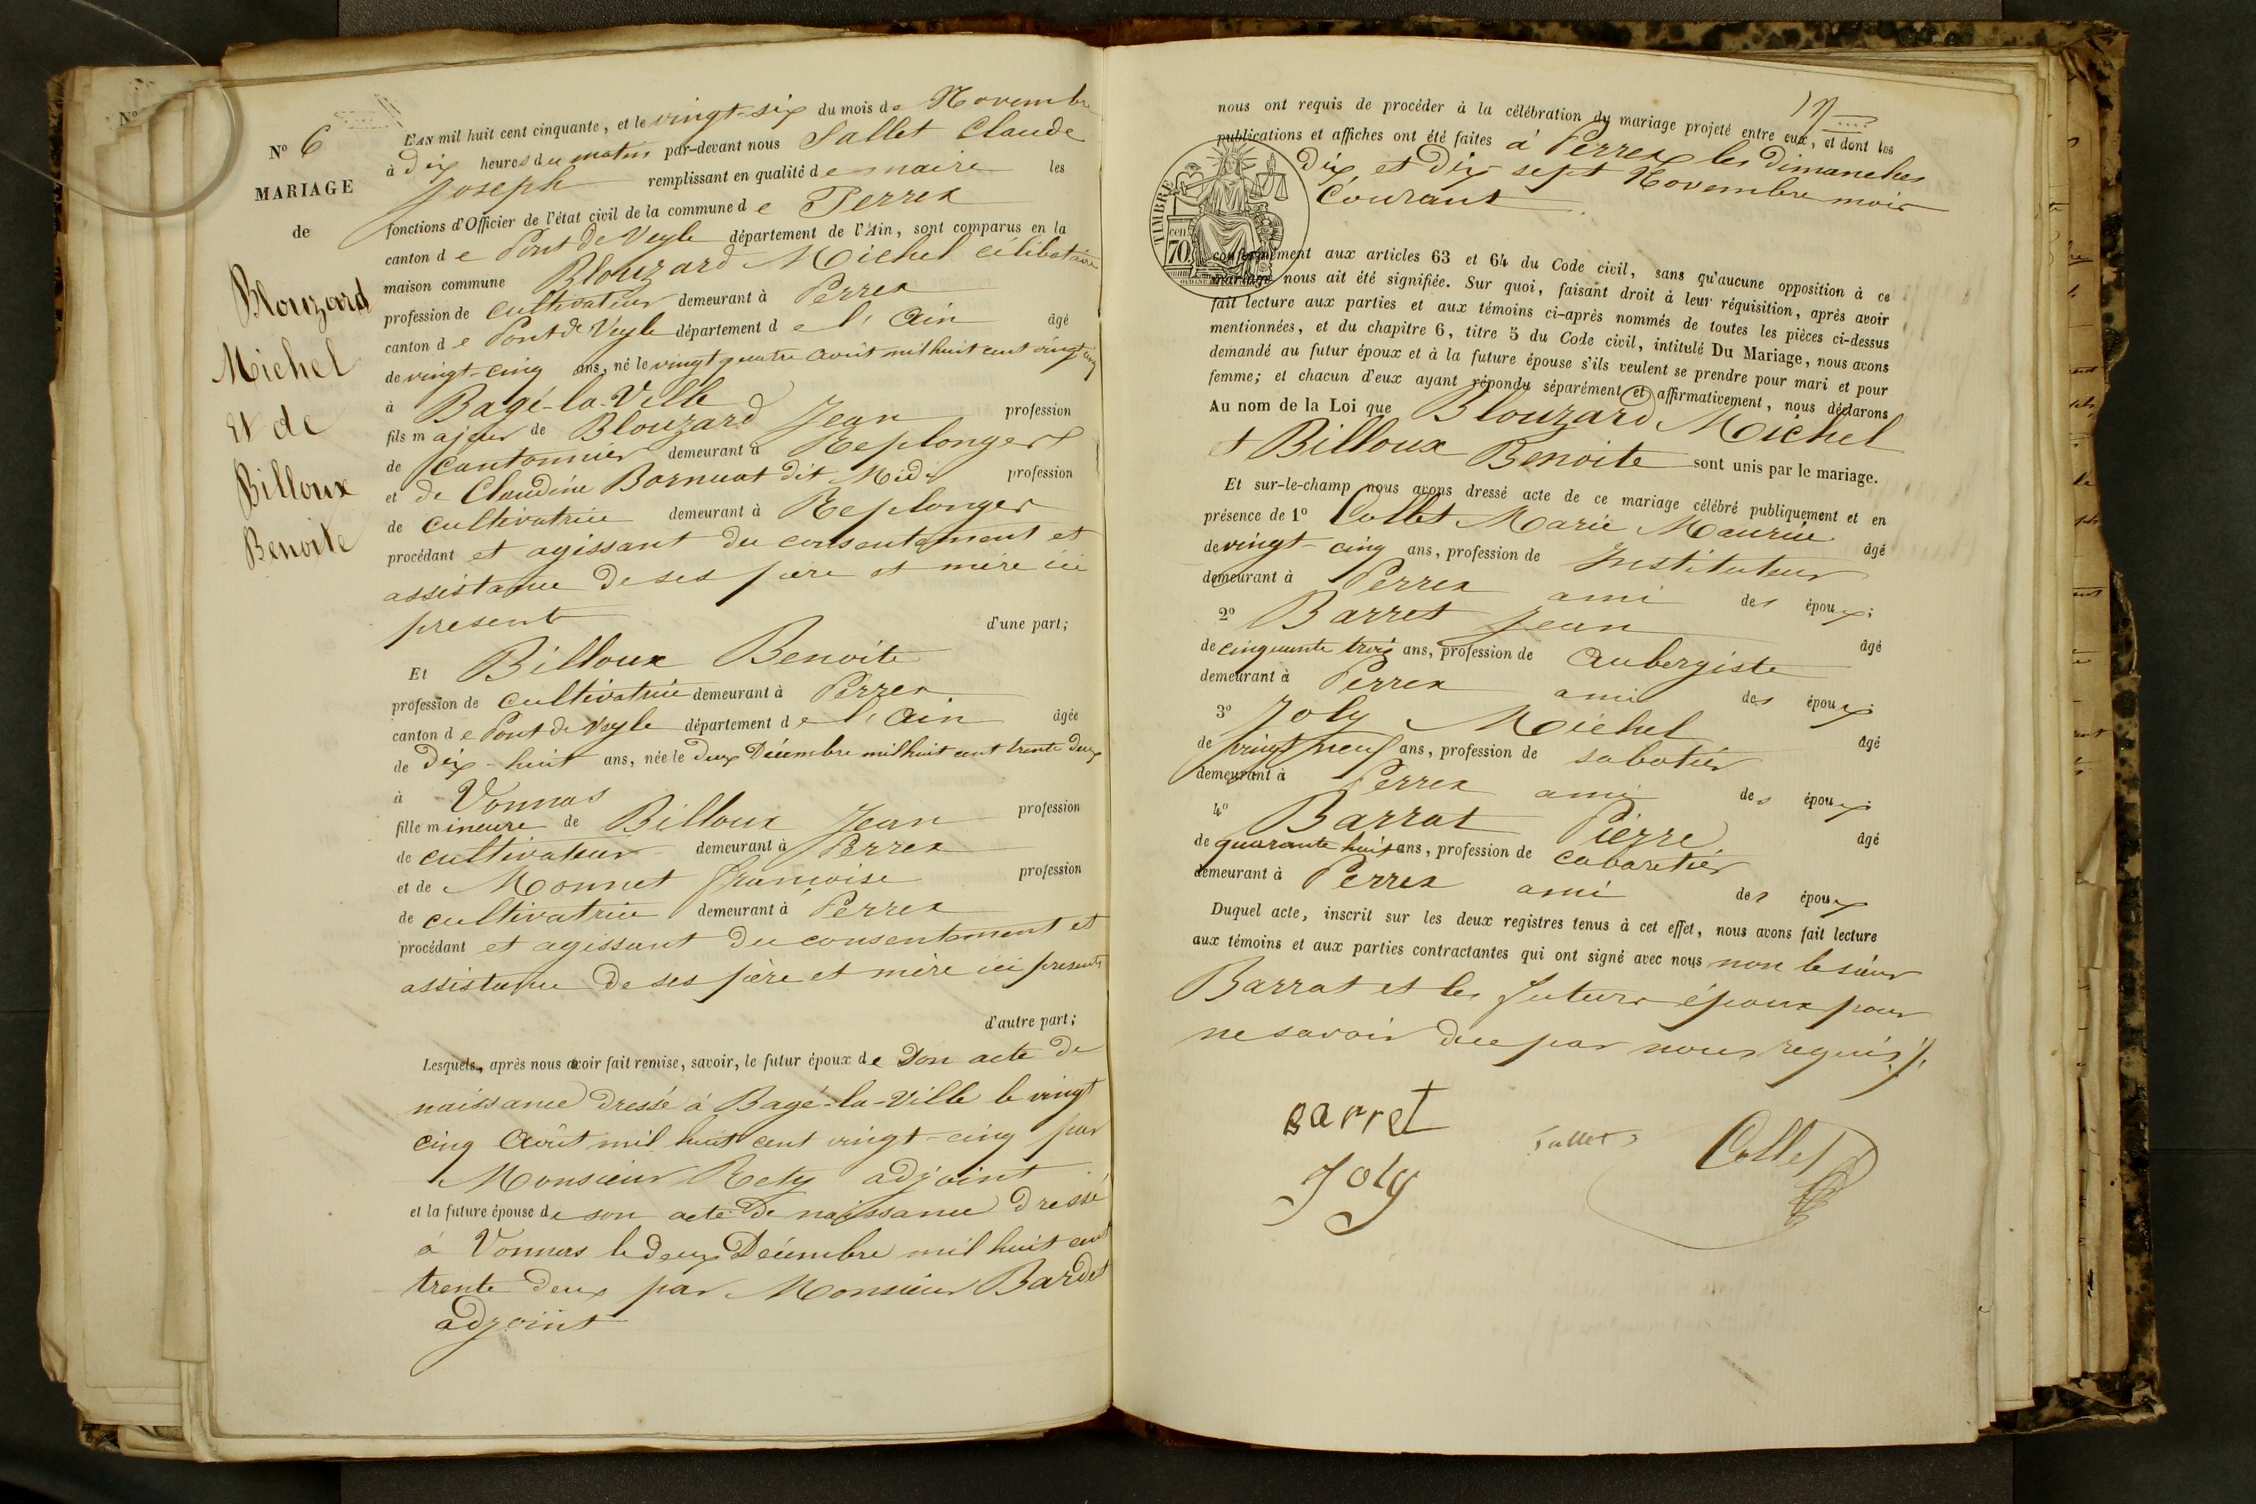 Nº
Nº 6
MARIAGE
de
Blouzard
Michel
Et de
Billoux
Benoite
L'AN mil huit cent cinquante, et le vingt-six du mois de Novembre
à dix heures du matin par-devant nous Sallet Claude
Joseph remplissant en qualité de maire les
fonctions d'Officier de l'état civil de la commune de Perrex
canton de Pont de Veyle département de l'Ain, sont comparus en la
maison commune Blouzard Michel célibataire
profession de cultivateur demeurant à Perrex
canton de Pont de Veyle département de l'Ain âgé
de vingt-cinq ans, né le vingt quatre août mil huit cent vingt cinq
à Bagé-la-Ville
fils majeur de Blouzard Jean profession
de cantonnier demeurant à Replonges
et de Claudine Bornuat dit Midi profession
de cultivatrice demeurant à Replonges
procédant et agissant du consentement et
assistance de ses père et mère ici
present d'une part;
Et Billoux Benoite
profession de cultivatrice demeurant à Perrex
canton de Pont de Veyle département de l'Ain âgée
de dix-huit ans, née le deux Décembre mil huit cent trente deux
à Vonnas
fille mineure de Billoux Jean profession
de cultivateur demeurant à Perrex
et de Monnet françoise profession
de cultivatrice demeurant à Perrex
procédant et agissant du consentement et
assistance de ses père et mère ici presents
d'autre part;
Lesquels, après nous avoir fait remise, savoir, le futur époux de Son acte de
naissance dressé à Bagé-la-Ville le vingt
cinq Août mil huit cent vingt-cinq par
Monsieur Rety adjoint
et la future épouse de son acte de naissance dressé
à Vonnas le deux Décembre mil huit cent
trente deux par Monsieur Bardet
adjoint
nous ont requis de procéder à la célébration du mariage projeté entre eux, et dont les
publications et affiches ont été faites à Perrex les dimanches
dix et dix sept Novembre mois
Courant
TIMBRE
cen.
70
conformément aux articles 63 et 64 du Code civil, sans qu'aucune opposition à ce
mariage nous ait été signifiée. Sur quoi, faisant droit à leur réquisition, après avoir
fait lecture aux parties et aux témoins ci-après nommés de toutes les pièces ci-dessus
mentionnées, et du chapitre 6, titre 5 du Code civil, intitulé Du Mariage, nous avons
demandé au futur époux et à la future épouse s'ils veulent se prendre pour mari et pour
femme; et chacun d'eux ayant répondu séparément et affirmativement, nous déclarons
Au nom de la Loi que Blouzard Michel
et Billoux Benoite sont unis par le mariage.
Et sur-le-champ nous avons dressé acte de ce mariage célébré publiquement et en
présence de 1º Collet Marie Maurice âgé
de vingt-cinq ans, profession de Instituteur
demeurant à Perrex ami des époux;
2º Barret Jean âgé
de cinquante trois ans, profession de Aubergiste
demeurant à Perrex ami des époux;
3º Joly Michel âgé
de vingt neuf ans, profession de sabotier
demeurant à Perrex ami des époux;
4º Barrat Pierre âgé
de quarante huit ans, profession de cabaretier
demeurant à Perrex ami des époux
Duquel acte, inscrit sur les deux registres tenus à cet effet, nous avons fait lecture
aux témoins et aux parties contractantes qui ont signé avec nous non le sieur
Barrat et les futurs époux pour
ne savoir due par nous requis
Barret
Sallet
Collet
Joly